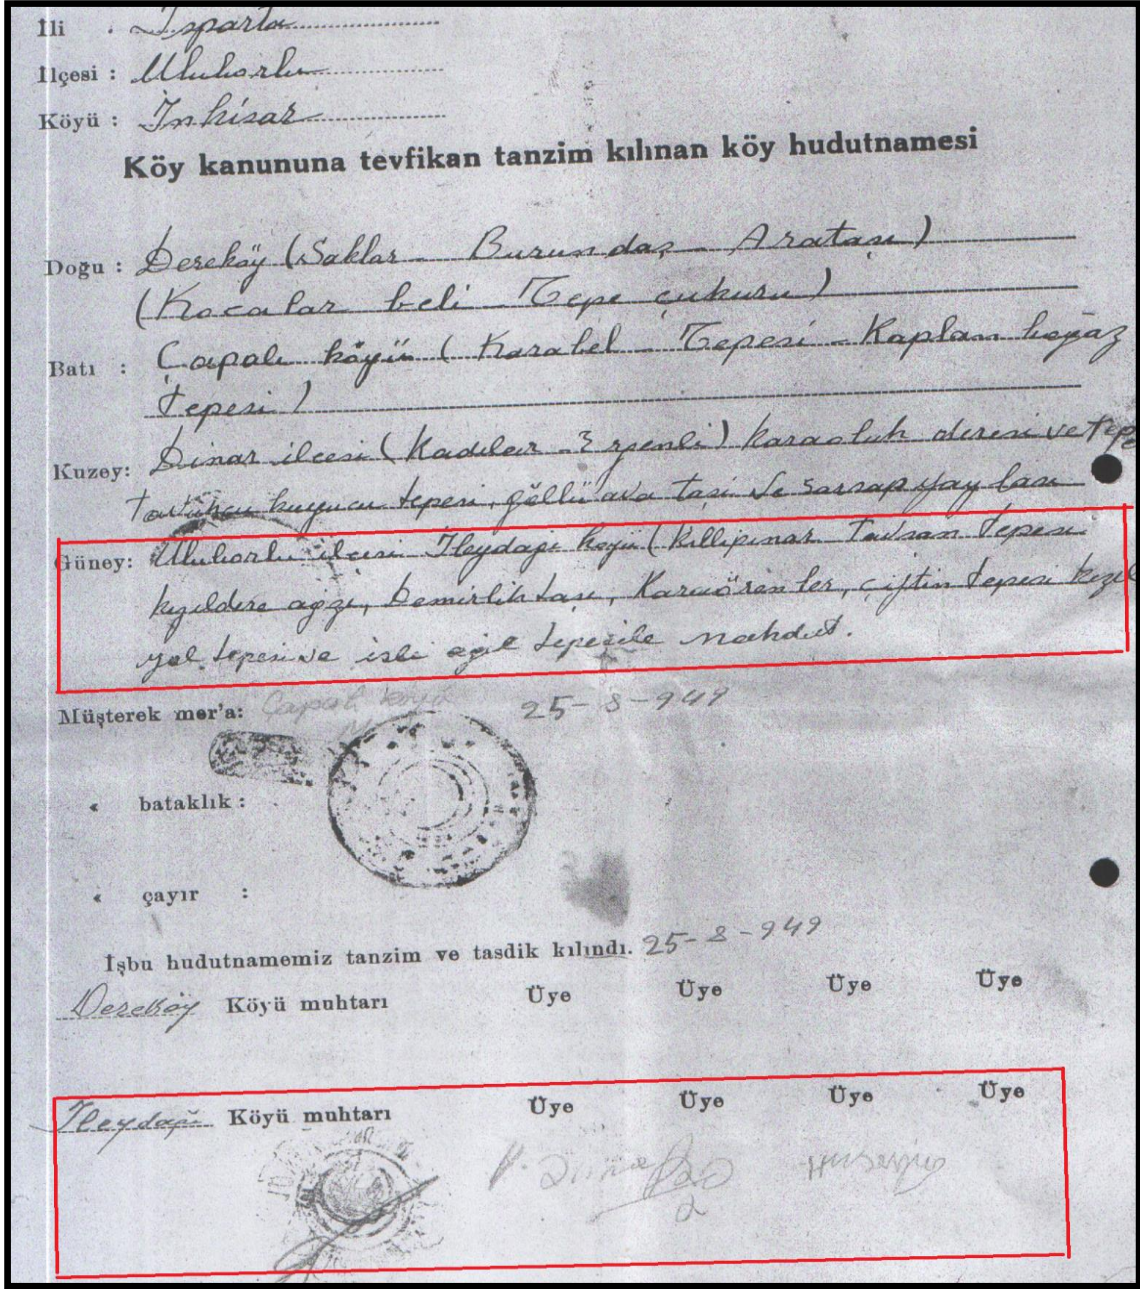 İli : Isparta
İlçesi : Uluborlu
Köyü : İnhisar
Köy kanununa tevfikan tanzim kılınan köy hudutnamesi
Doğu : Dereköy (Saklar Burundaş Arataşı)
(Kocalar beli Tepe çukuru)
Batı : Çapalı köyü (Karabel Tepesi - Kaplan boğaz
tepesi)
Kuzey: Dinar ilcesi (Kadılar - ) karaoluk deresi ve tepe
kuyucu tepesi, göllü ova taşi ve yaylası
Güney: Uluborlu ilcesi İleydağı köyü (Killipınar Tavşan Tepesi
kızıldere ağzı, Demirlik taşı, Karaörenler, çiftin tepesi kızıl
yol tepesi ve isli ağıl tepesile mahdut.
Müşterek mer'a: Çapalı köyü 25-8-949
« bataklık :
« çayır :
İşbu hudutnamemiz tanzim ve tasdik kılındı. 25-8-949
Dereköy Köyü muhtarı Üye Üye Üye Üye
İleydağı Köyü muhtarı Üye Üye Üye Üye